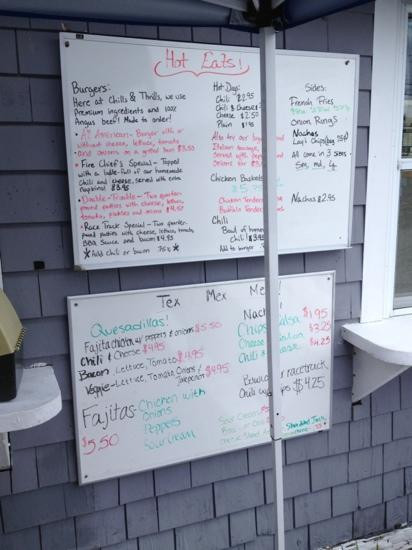 Hot Eats!
Burgers:
Here at Chills & Thrills, we use
Premium ingredients and 100%
Angus beef! Made to order!
• All American- Burger with or
without cheese, lettuce, tomato
and onions on a grilled bun $3.50
• Fire Chief's Special - Topped
with a ladle-full of our homemade
Chili and cheese, served with extra
napkins! $3.95
• Double-Trouble - Two quarter-
pound patties with cheese, lettuce,
tomato, pickles and onions $4.50
• Race Track Special - Two quarter-
pound patties with cheese, lettuce, tomato,
BBQ Sauce and bacon $4.50
* Add chili or bacon 75¢ *
Hot Dogs
Chili $2.95
Chili & Cheese
Cheese $2.50
Plain $1.95
Also try our
Italian Sausage,
Served with
Onions for
Chicken Baskets
Chicken Tender
Buffalo Tender
Chili
Bowl of home
Chili $3.95
Add to burger
Sides:
French Fries
Onion Rings
Nachos
Lay's Chips
All come in 3 sizes
Sm, md, Lg
Nachos $2.95
Tex Mex Me
Quesadillas!
Fajita Chicken w/ peppers & onions $5.50
Chili & Cheese $4.95
Bacon Lettuce, Tomato $4.95
Veggie- Lettuce, Tomato, Onions & Jalapeños $4.95
Fajitas- Chicken with
Onions
Peppers
Sour Cream
$5.50
Nach
Chips Salsa $1.95
Cheese $3.25
Chili & $4.25
racetrack
Chili $4.25
Sour Cream